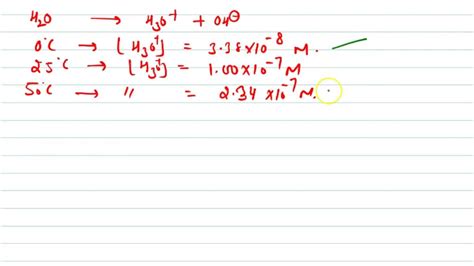 H₂O → H₃O⁺ + OH⊖
0°C → [H₃O⁺] = 3.38×10⁻⁸ M.
25°C → [H₃O⁺] = 1.00×10⁻⁷ M
50°C → " = 2.34 ×10⁻⁷ M.